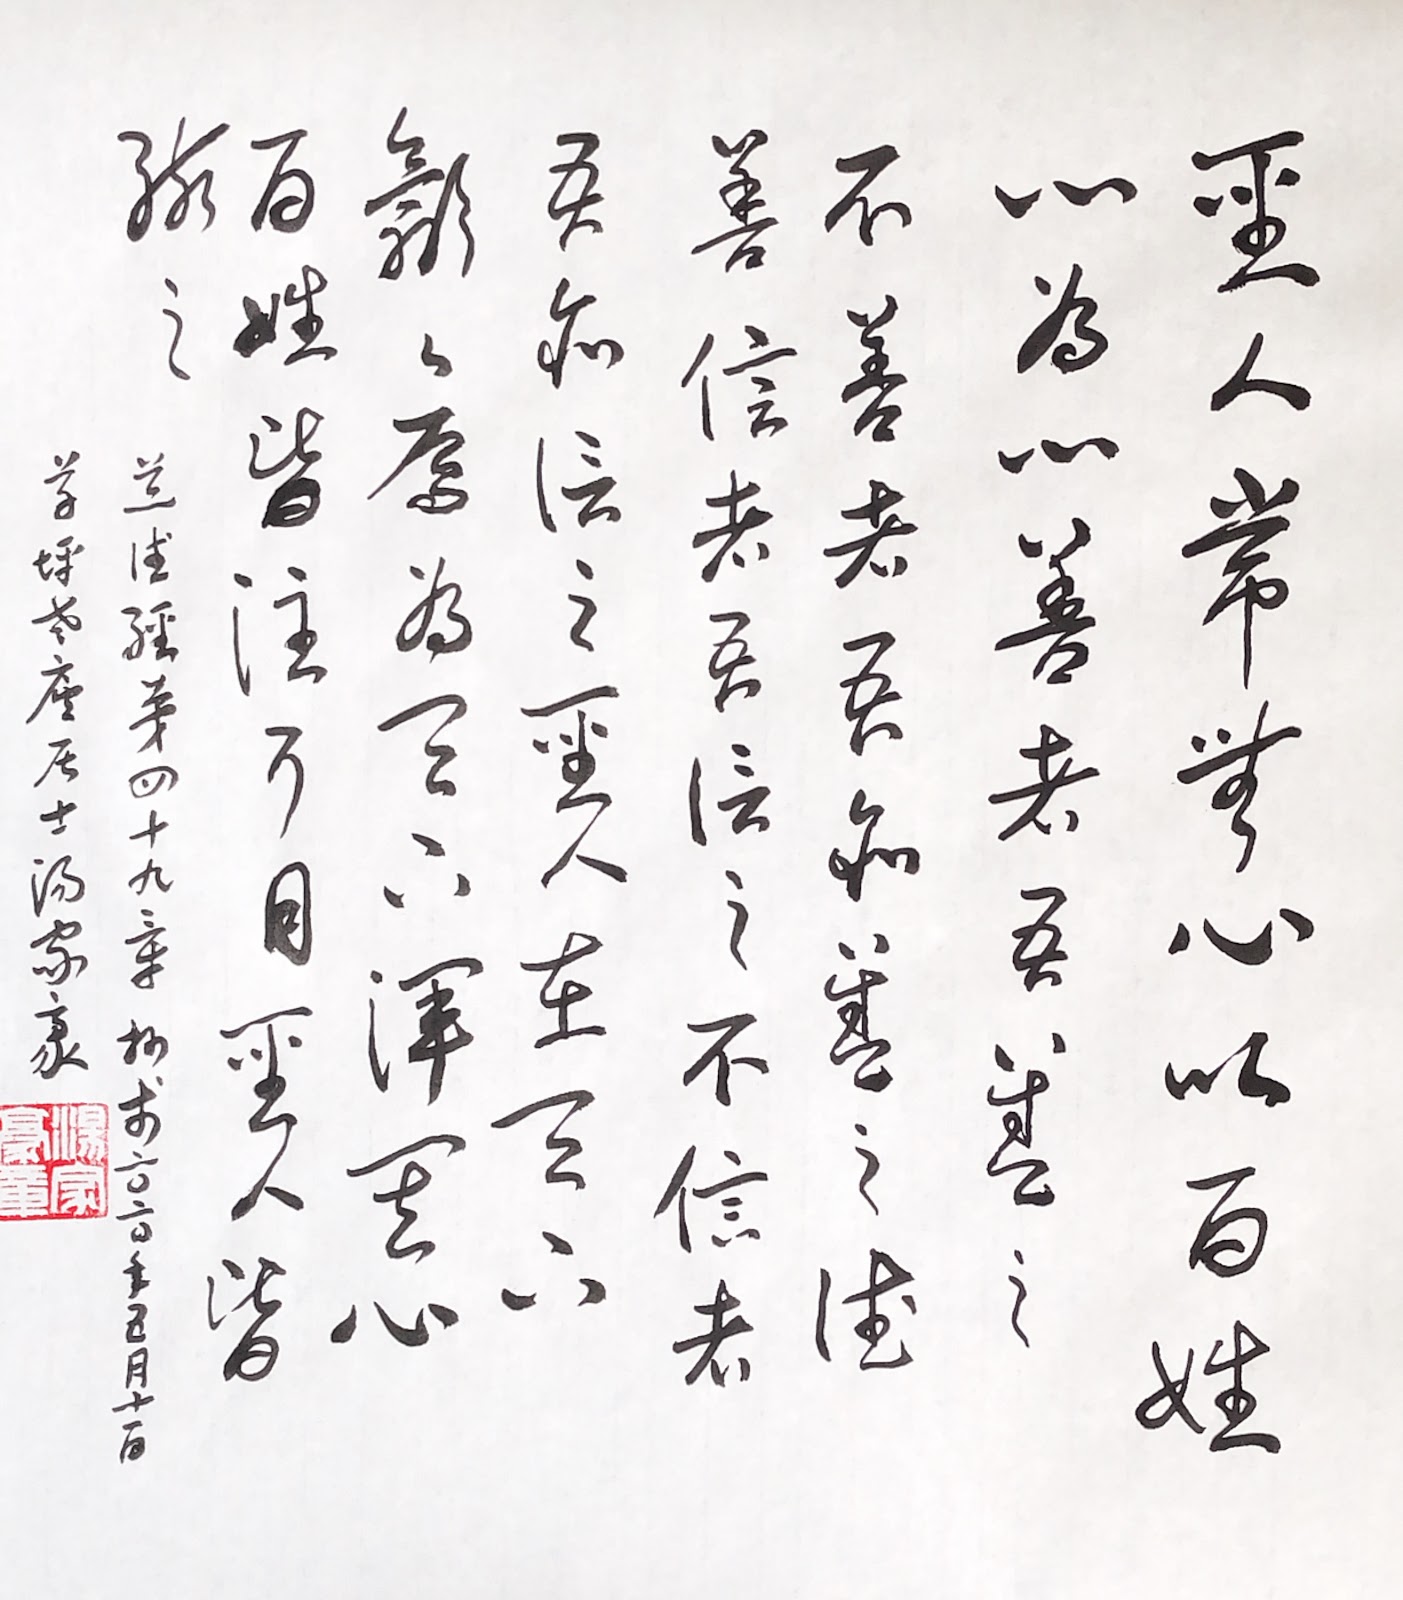 聖人常無心以百姓
心為心善者吾善之
不善者吾亦善之德
善信者吾信之不信者
吾亦信之聖人在天下
歙々焉為天下渾其心
百姓皆注耳目聖人皆
孩之
道德經第四十九章 二〇二〇年五月十一日
坪老廬居士湯家豪
湯家豪章